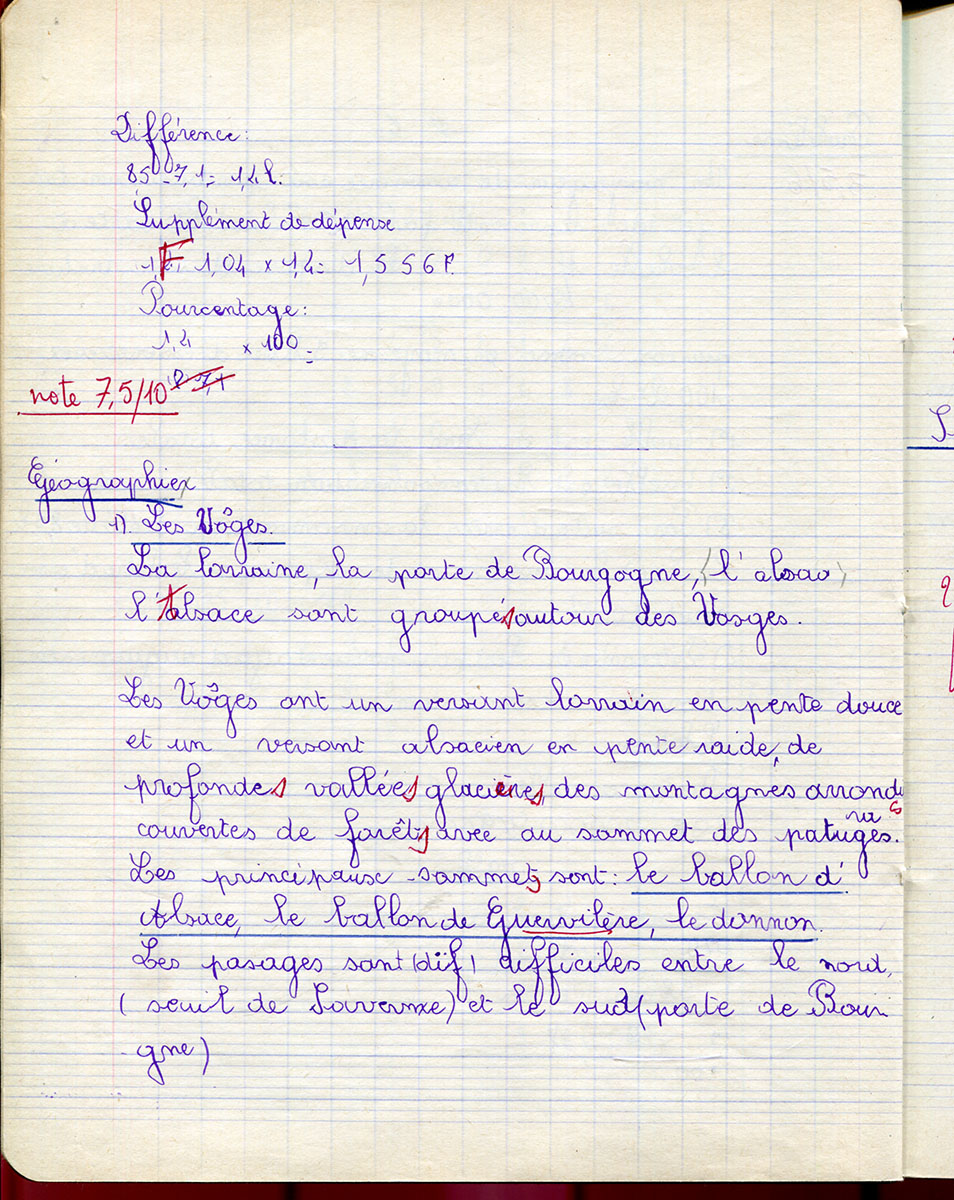 Différence:
85 - 7,1 = 1,4 l.
Supplément de dépense
F 1,04 × 1,4 = 1,556 F.
Pourcentage:
1,4 × 100 =
note 7,5/10
Géographie
1) Les Vôges.
La lorraine, la porte de Bourgogne, (l'alsac)
l'Alsace sont groupés autour des Vosges.
Les Vôges ont un versant lorrain en pente douce
et un versant alsacien en pente raide, de
profondes vallées glacières, des montagnes arrondies
couvertes de forêts avec au sommet des paturages.
Les principause sommets sont: le ballon d'
Alsace, le ballon de Guervilère, le donnon.
Les pasages sont (dif) difficiles entre le nord,
(seuil de Saverne) et le sud (porte de Bour
gne)